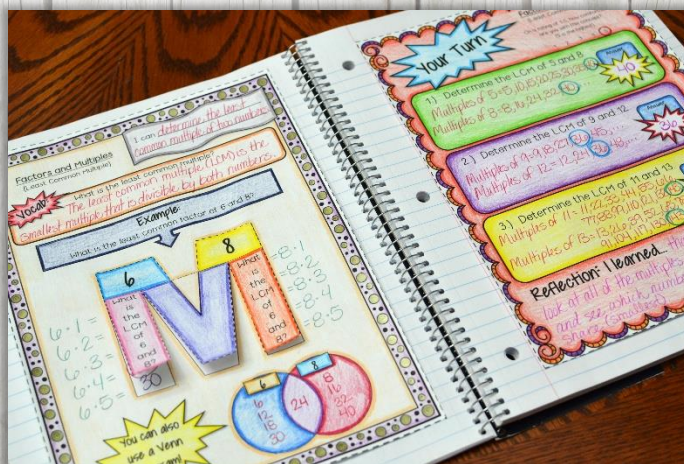 I can determine the least
common multiple of two numbers.
Factors and Multiples
(Least Common Multiple)
Vocab
What is the least common multiple?
The least common multiple (LCM) is the
smallest multiple that is divisible by both numbers.
Example:
What is the least common factor of 6 and 8?
6
8
What
is
the
LCM
of
6
and
8?
30
What
is
the
LCM
of
6
and
8?
6·1=
6·2=
6·3=
6·4=
6·5=
=8·1
=8·2
=8·3
=8·4
=8·5
6
8
6
12
18
30
24
8
16
32
40
You can also
use a Venn
Your Turn
1.) Determine the LCM of 5 and 8
Multiples of 5=5,10,15,20,25,30,35,40
Multiples of 8=8,16,24,32,40
Answer
40
2.) Determine the LCM of 9 and 12
Multiples of 9=9,18,27,36,45,...
Multiples of 12=12,24,36,48,...
Answer
36
3.) Determine the LCM of 11 and 13
Multiples of 11=11,22,33,44,55,
Multiples of 13=13,26,39,52,
Reflection: I learned...
look at all of the multiples
and see which number